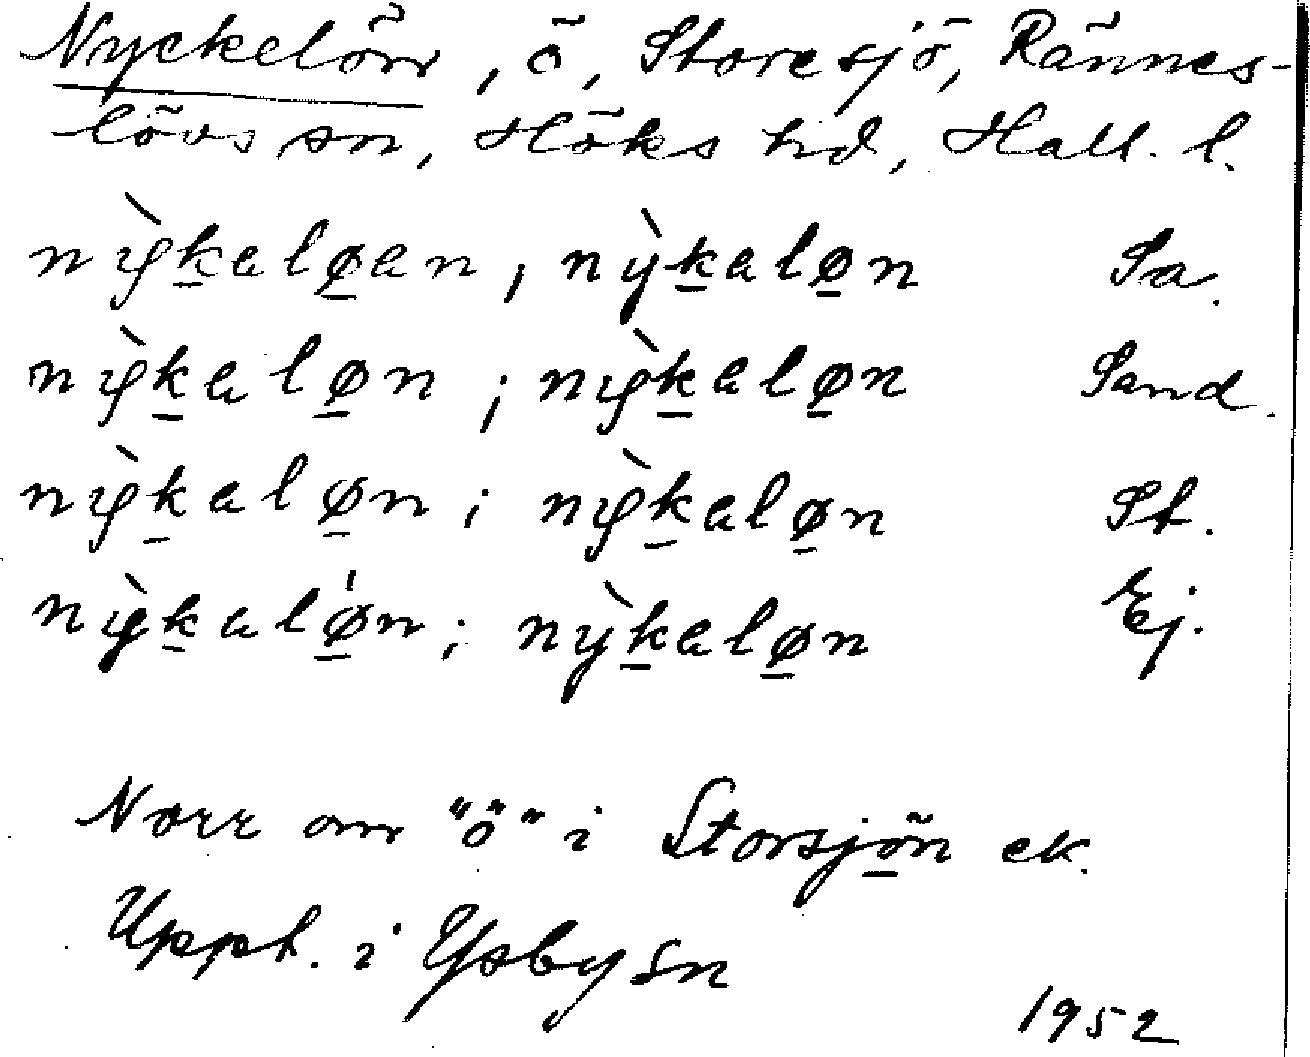 Nyckelön, ö, Store sjö, Rännes-
lövs sn, Höks hd, Hall. l.
nỳk̲aløan, nỳk̲aløn Sa.
nỳk̲aløn; nỳk̲aløn Sand.
nỳk̲aløn; nỳk̲aløn St.
nỳk̲alø̍n; nỳk̲aløn Ej.
Norr om "ö" i Storsjön ek.
Uppt. i Ysby sn
1952